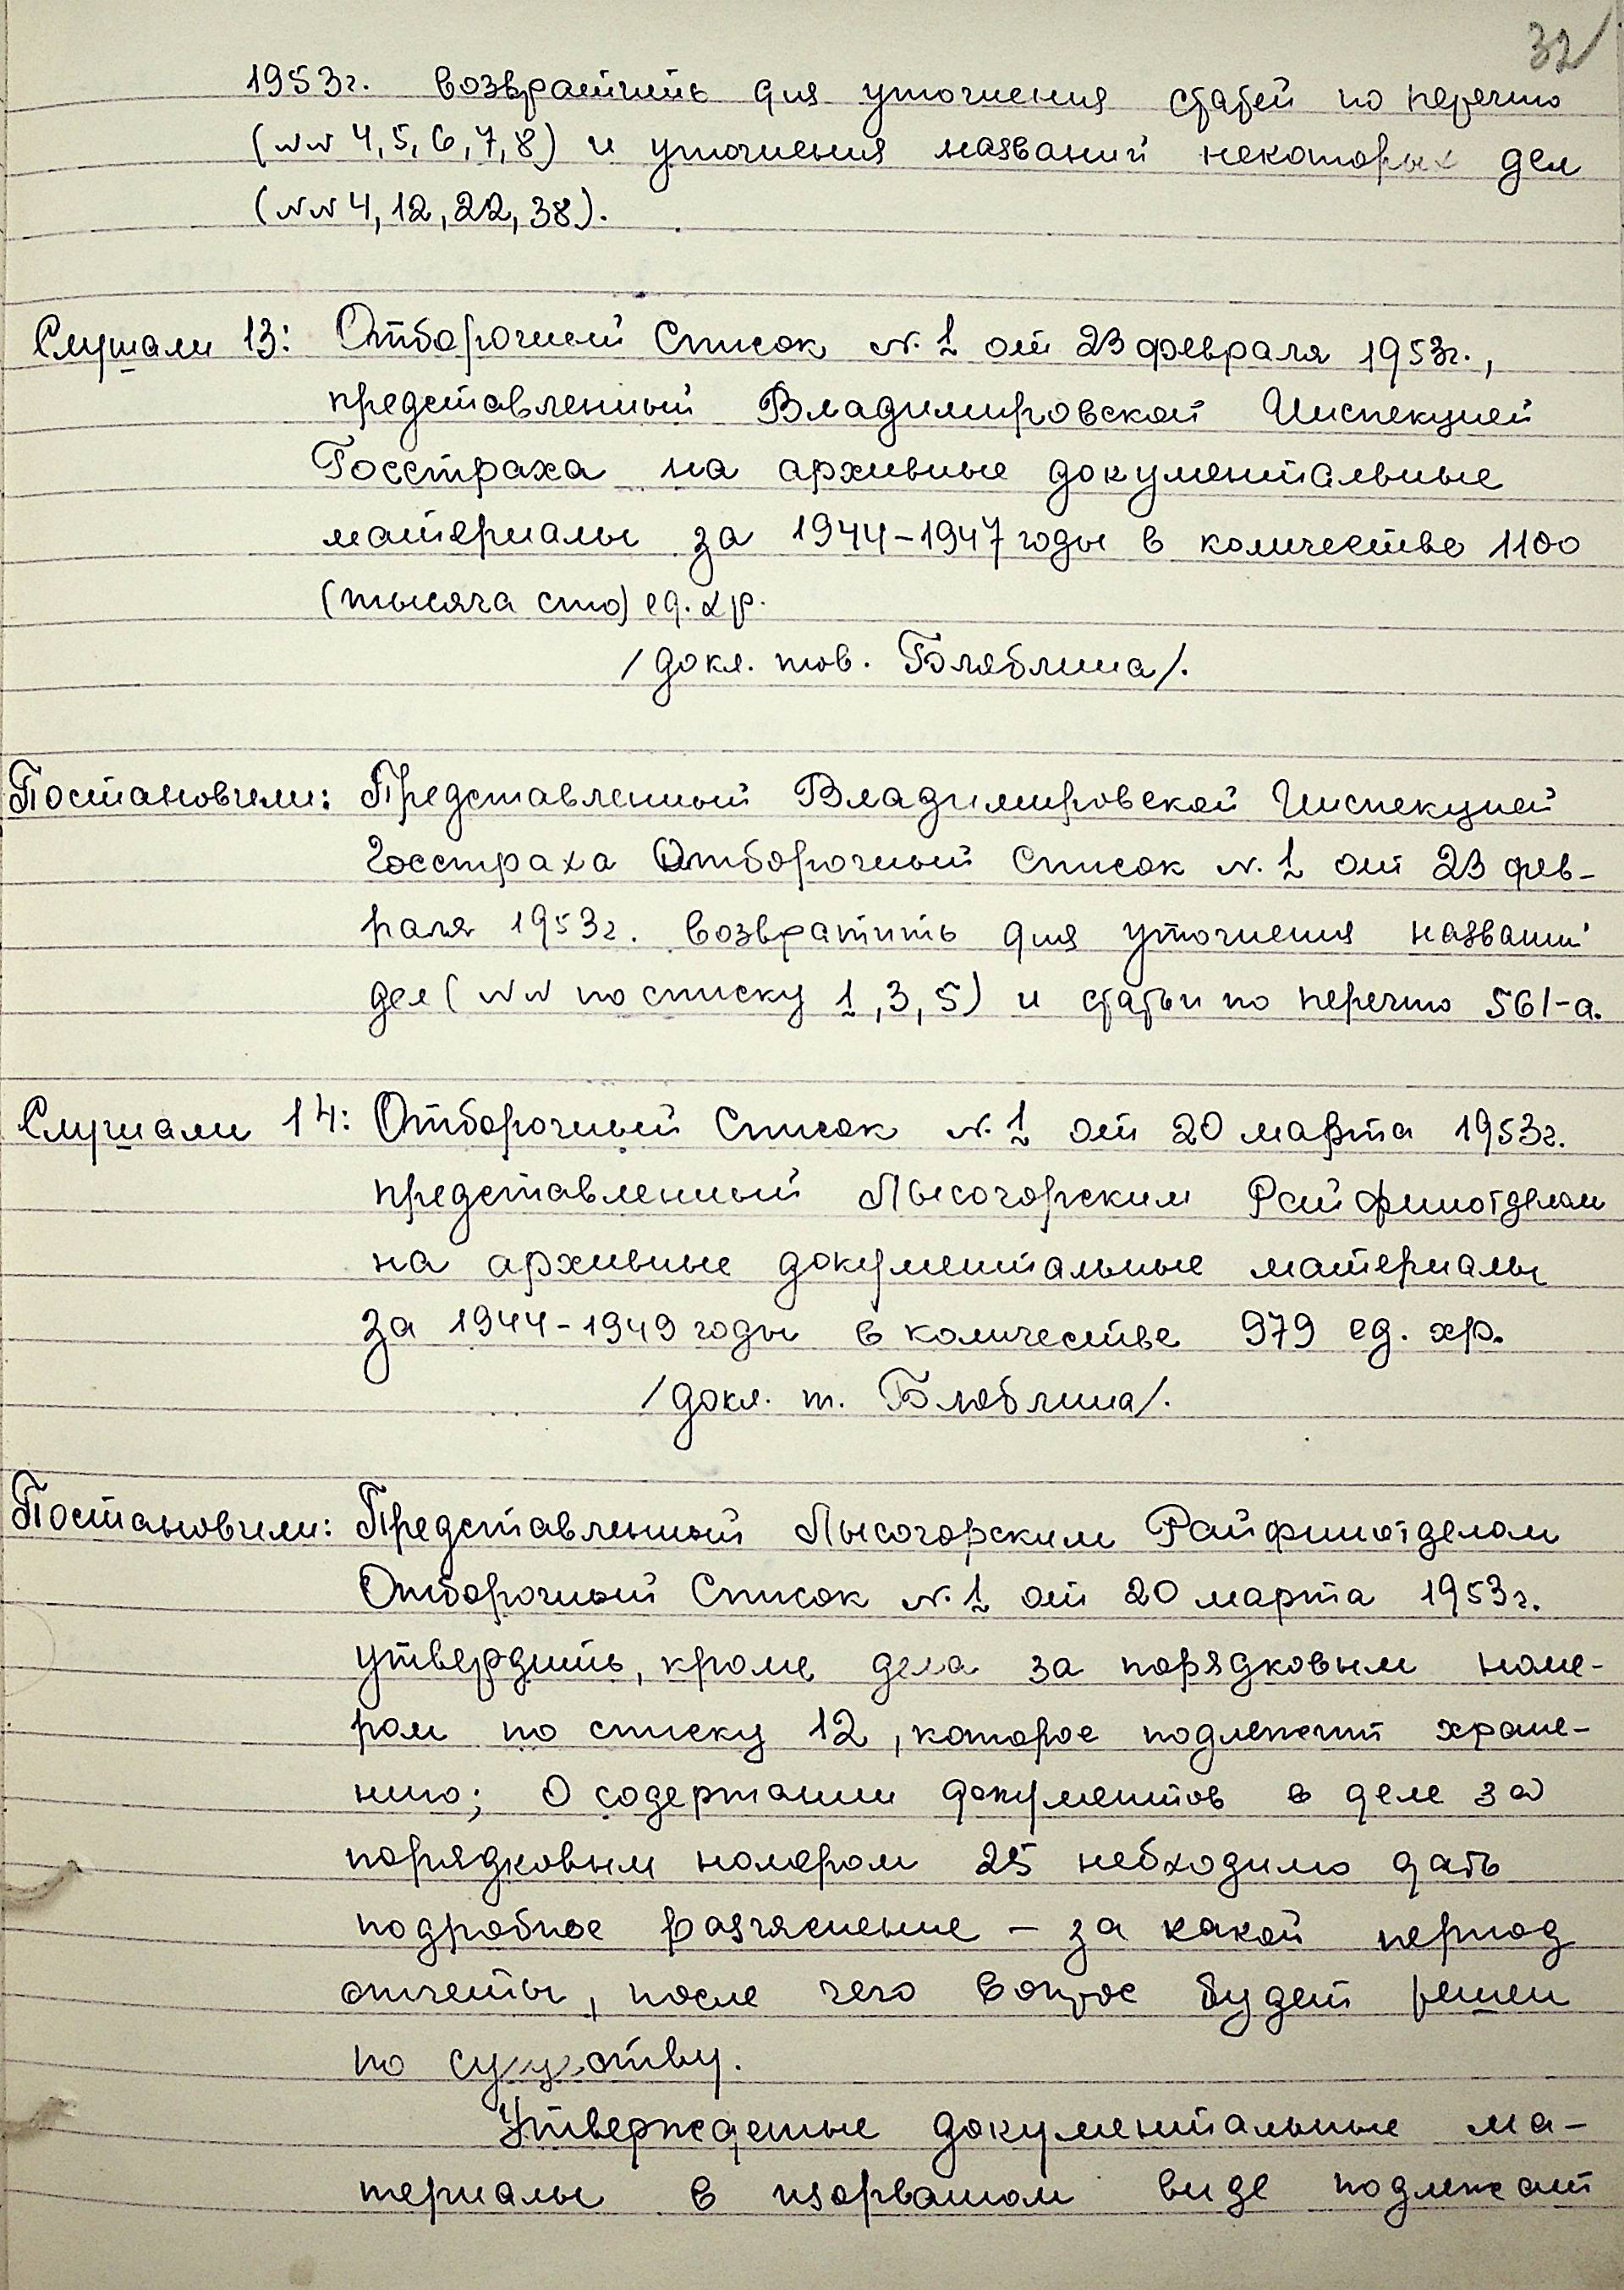 32
1953г. возвратить для уточнения статей по перечню
(№№ 4, 5, 6, 7, 8) и уточнения названий некоторых дел
(№№ 4, 12, 22, 38).
Слушали 13: Отборочный Список №. 1 от 23 февраля 1953г.,
представленный Владимировской Инспекцией
Госстраха на архивные документальные
материалы за 1944-1947 годы в количестве 1100
(тысяча сто) ед. хр.
/докл. тов. /.
Постановили: Представленный Владимировской Инспекцией
Госстраха Отборочный Список №. 1 от 23 фев-
раля 1953г. возвратить для уточнения названий
дел (№№ по списку 1, 3, 5) и статьи по перечню 561-а.
Слушали 14: Отборочный Список №. 1 от 20 марта 1953г.
представленный Лысогорским Райфинотделом
на архивные документальные материалы
за 1944-1949 годы в количестве 979 ед. хр.
/докл. т. /.
Постановили: Представленный Лысогорским Райфинотделом
Отборочный Список №. 1 от 20 марта 1953г.
утвердить, кроме дела за порядковым номе-
ром по списку 12, которое подлежит хране-
нию; О содержании документов в деле за
порядковым номером 25 небходимо дать
подробное разъяснение - за какой период
отчеты, после чего вопрос будет решен
по существу.
Утвержденые документальные ма-
териалы в изорванном виде подлежат